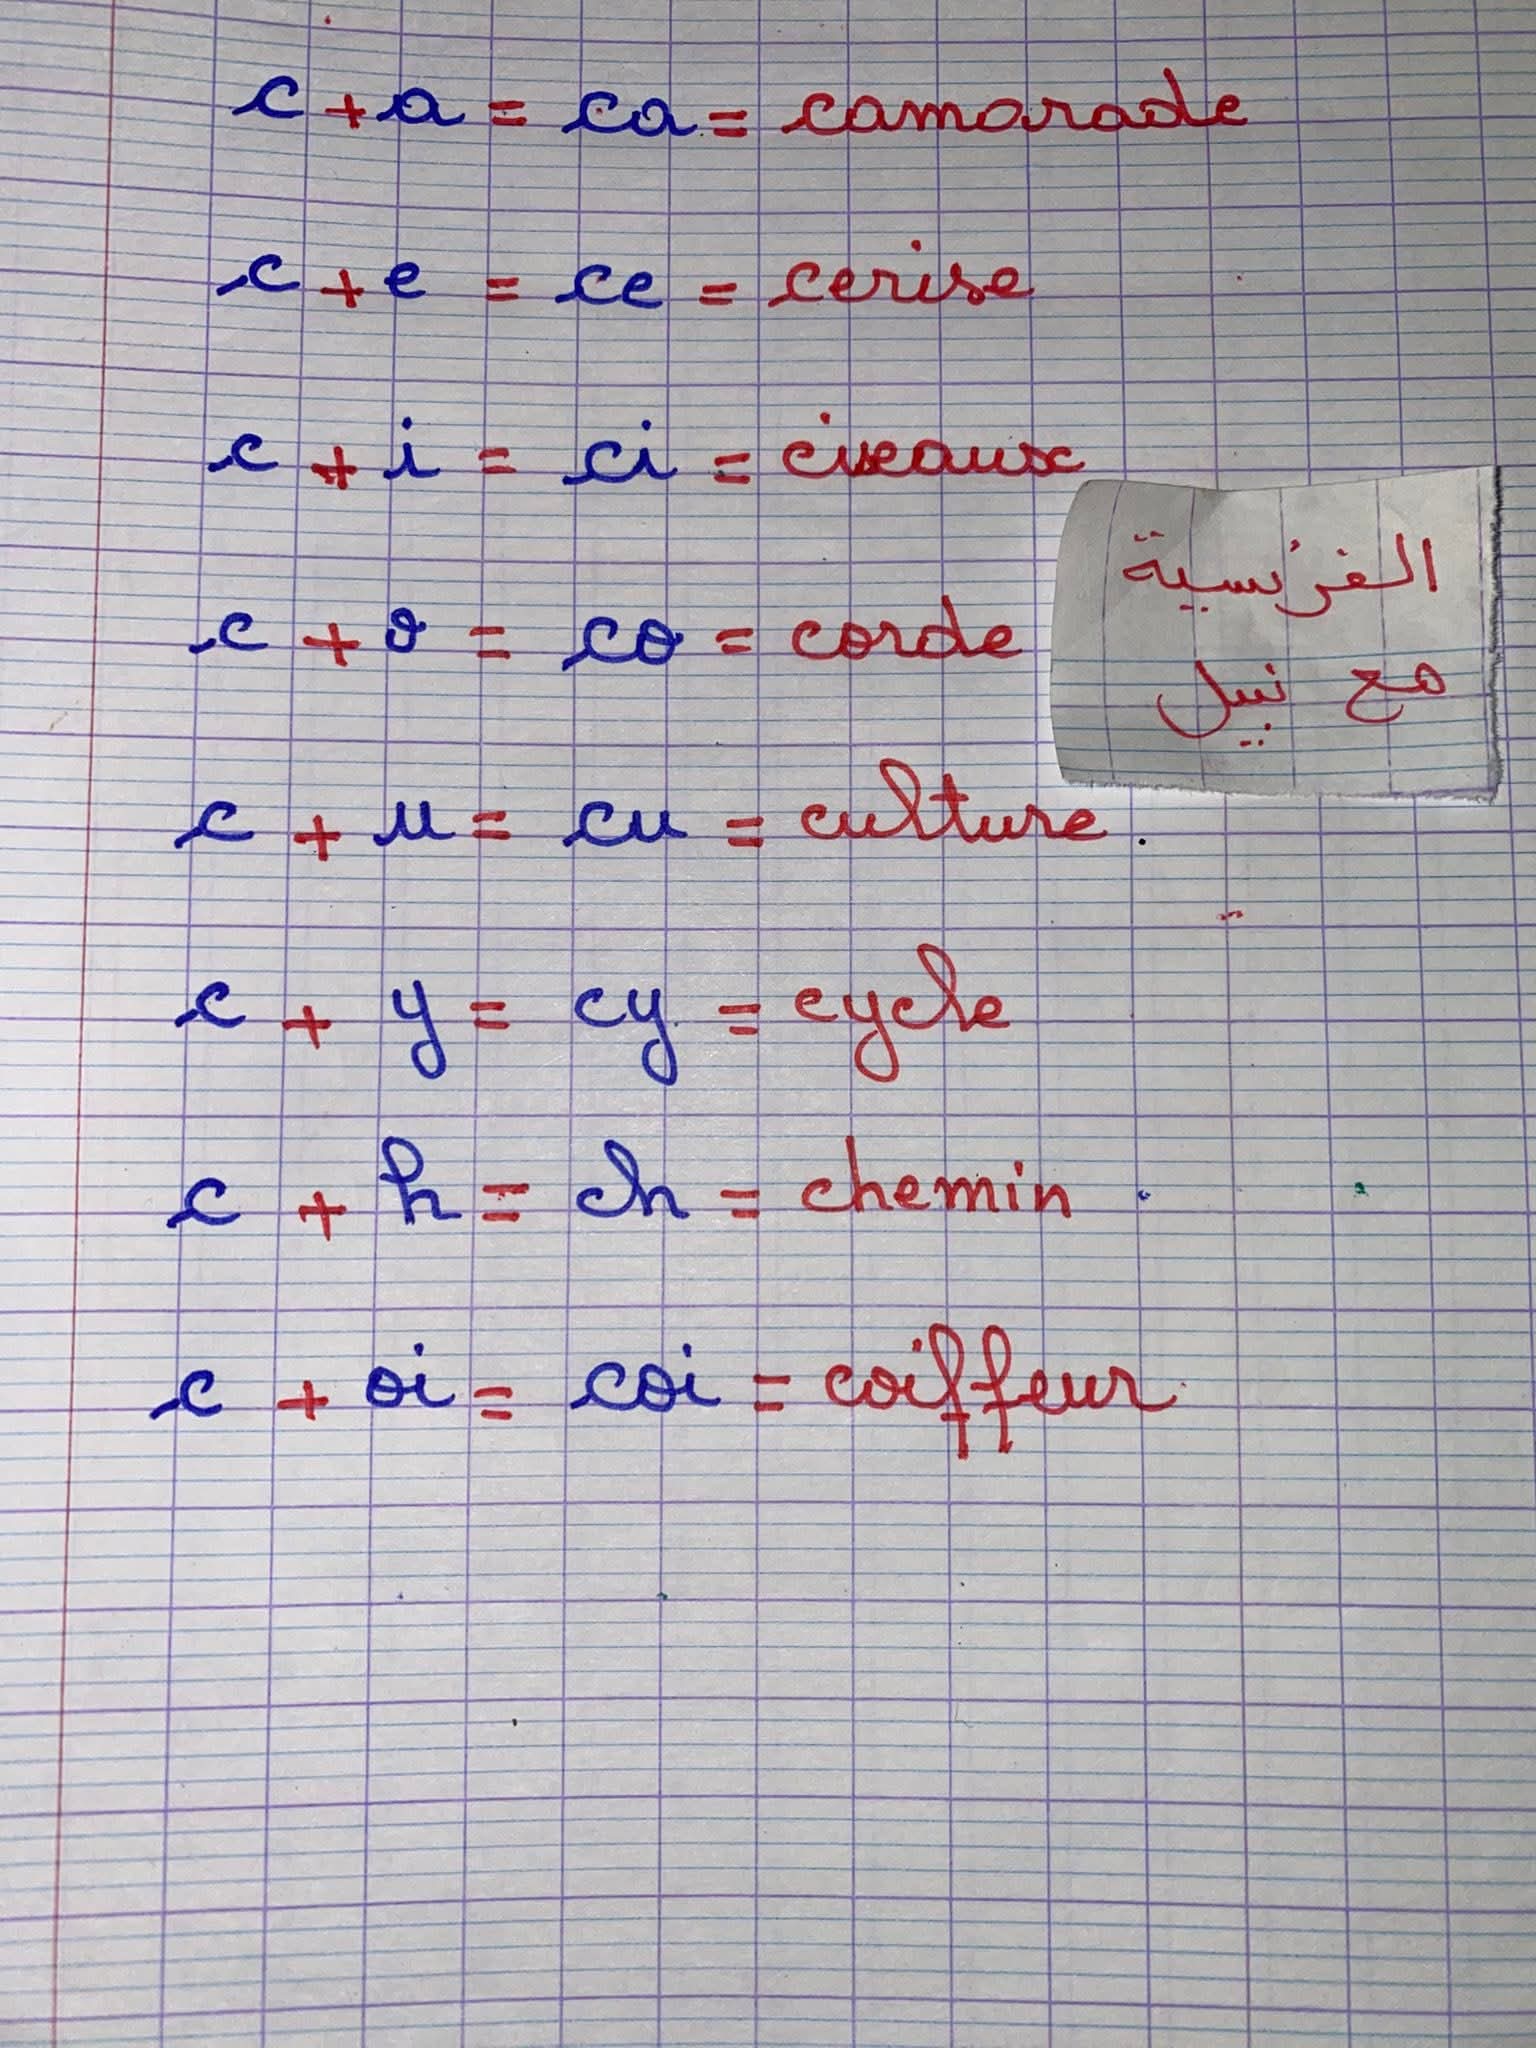 c + a = ca = camarade
c + e = ce = cerise
c + i = ci = ciseaux
c + o = co = corde
c + u = cu = culture
c + y = cy = cycle
c + h = ch = chemin
c + oi = coi = coiffeur
الفرنسية
مع نبيل